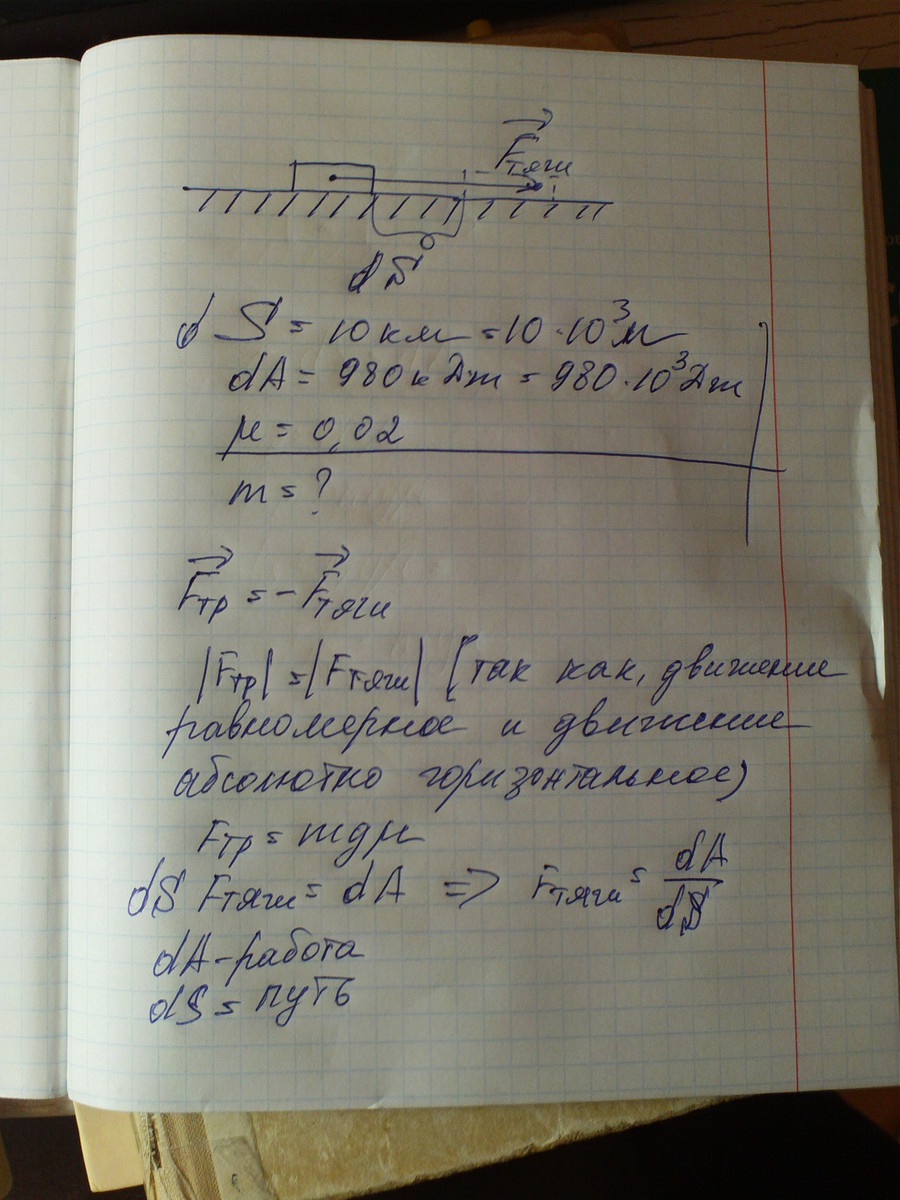 F⃗тяги
dS
dS = 10 км = 10·10³м
dA = 980 кДж = 980·10³Дж
μ = 0,02
m = ?
F⃗тр = -F⃗тяги
|Fтр| = |Fтяги| (так как, движение
равномерное и движение
абсолютно горизонтальное)
Fтр = mgμ
dS Fтяги = dA => Fтяги = dA/dS
dA - работа
dS = путь